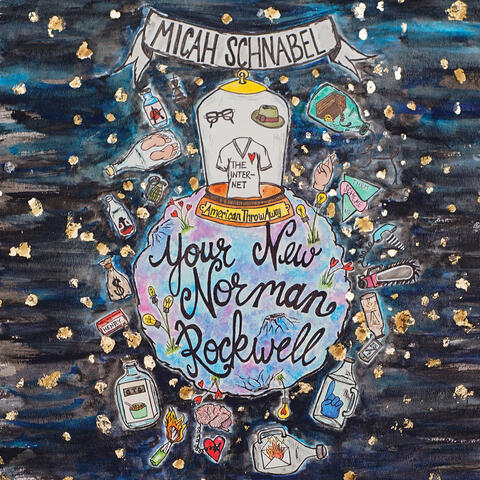 MICAH SCHNABEL
THE
INTER-
NET
American ThrowAway
Your New
Norman
Rockwell